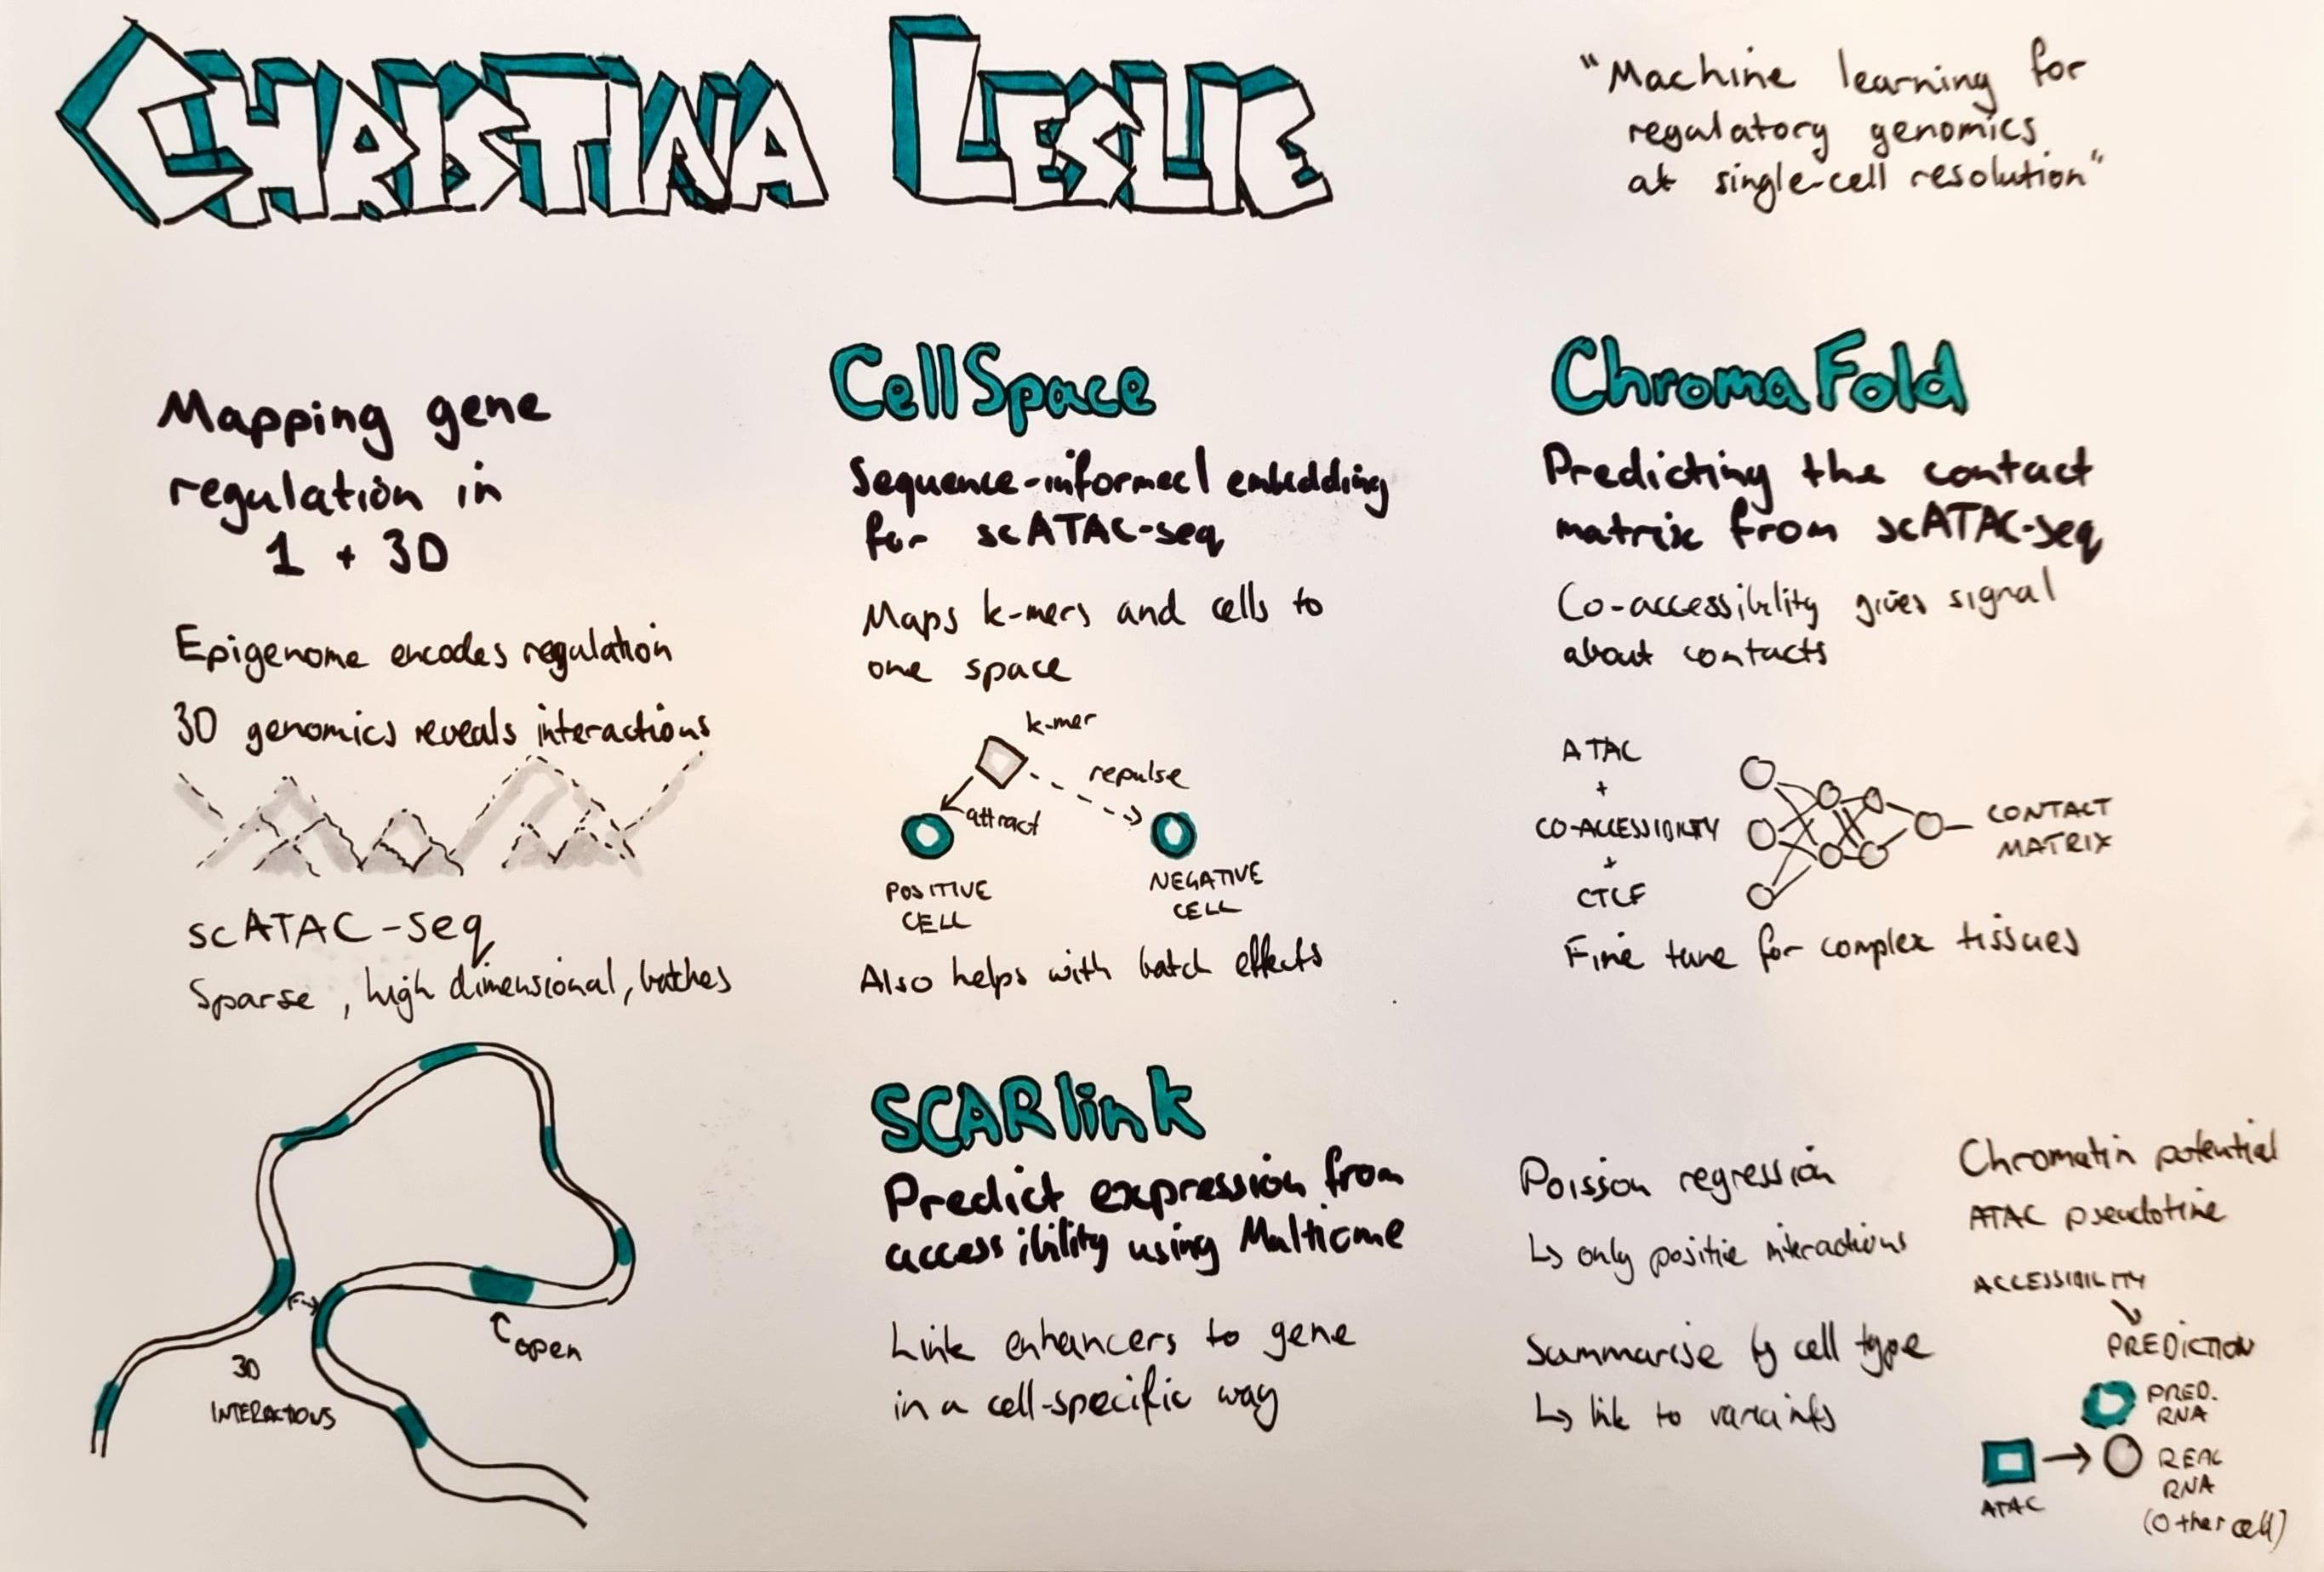 CHRISTINA LESLIE
"Machine learning for
regulatory genomics
at single-cell resolution"
Mapping gene
regulation in
1 + 3D
Epigenome encodes regulation
3D genomics reveals interactions
scATAC-seq
Sparse, high dimensional, batches
open
3D
INTERACTIONS
CellSpace
Sequence-informed embedding
for scATAC-seq
Maps k-mers and cells to
one space
k-mer
repulse
attract
POSITIVE
CELL
NEGATIVE
CELL
Also helps with batch effects
ChromaFold
Predicting the contact
matrix from scATAC-seq
Co-accessibility gives signal
about contacts
ATAC
+
CO-ACCESSIBILITY
+
CTCF
CONTACT
MATRIX
Fine tune for complex tissues
SCARlink
Predict expression from
accessibility using Multiome
Link enhancers to gene
in a cell-specific way
Poisson regression
↳ only positive interactions
Summarise by cell type
↳ link to variants
Chromatin potential
ATAC pseudotime
ACCESSIBILITY
PREDICTION
PRED.
RNA
REAL
RNA
(Other cell)
ATAC